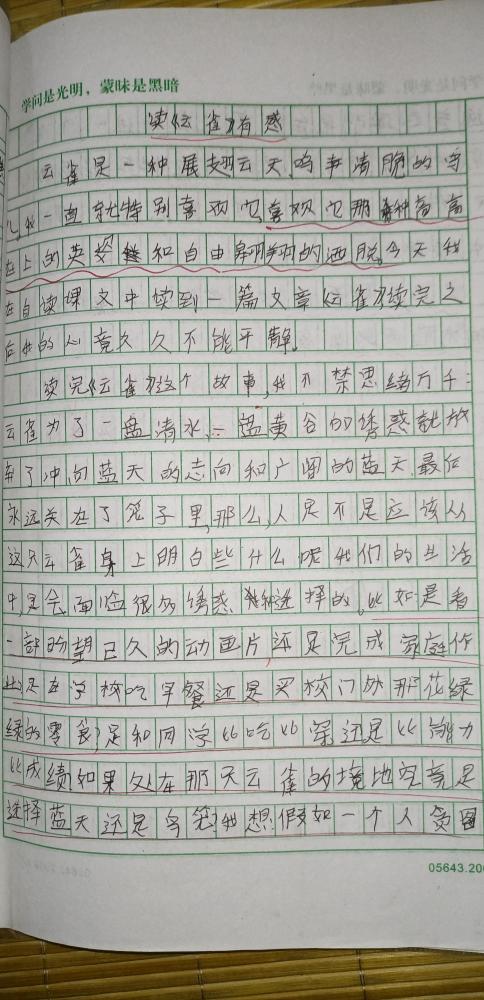 学问是光明，蒙昧是黑暗
读《云雀》有感
云雀是一种展翅云天,鸣声清脆的鸟
儿,我一直就特别喜欢它,喜欢它那种高高
在上的英姿和自由翱翔的洒脱。今天我
在自读课文中读到一篇文章《云雀》读完之
后我的心竟久久不能平静。
读完《云雀》这个故事,我不禁思绪万千:
云雀为了一盘清水,一盘黄谷的诱惑就放
弃了冲向蓝天的志向和广阔的蓝天,最后
永远关在了笼子里,那么,人是不是应该从
这只云雀身上明白些什么呢我们的生活
中,是会面临很多诱惑和选择的,比如是看
一部盼望已久的动画片还是完成家庭作
业;是在学校吃早餐还是买校门外那花绿
绿的零食;是和同学比吃比穿还是比能力
比成绩如果处在那天云雀的境地究竟是
选择蓝天还是鸟笼?我想,假如一个人贪图
05643.200